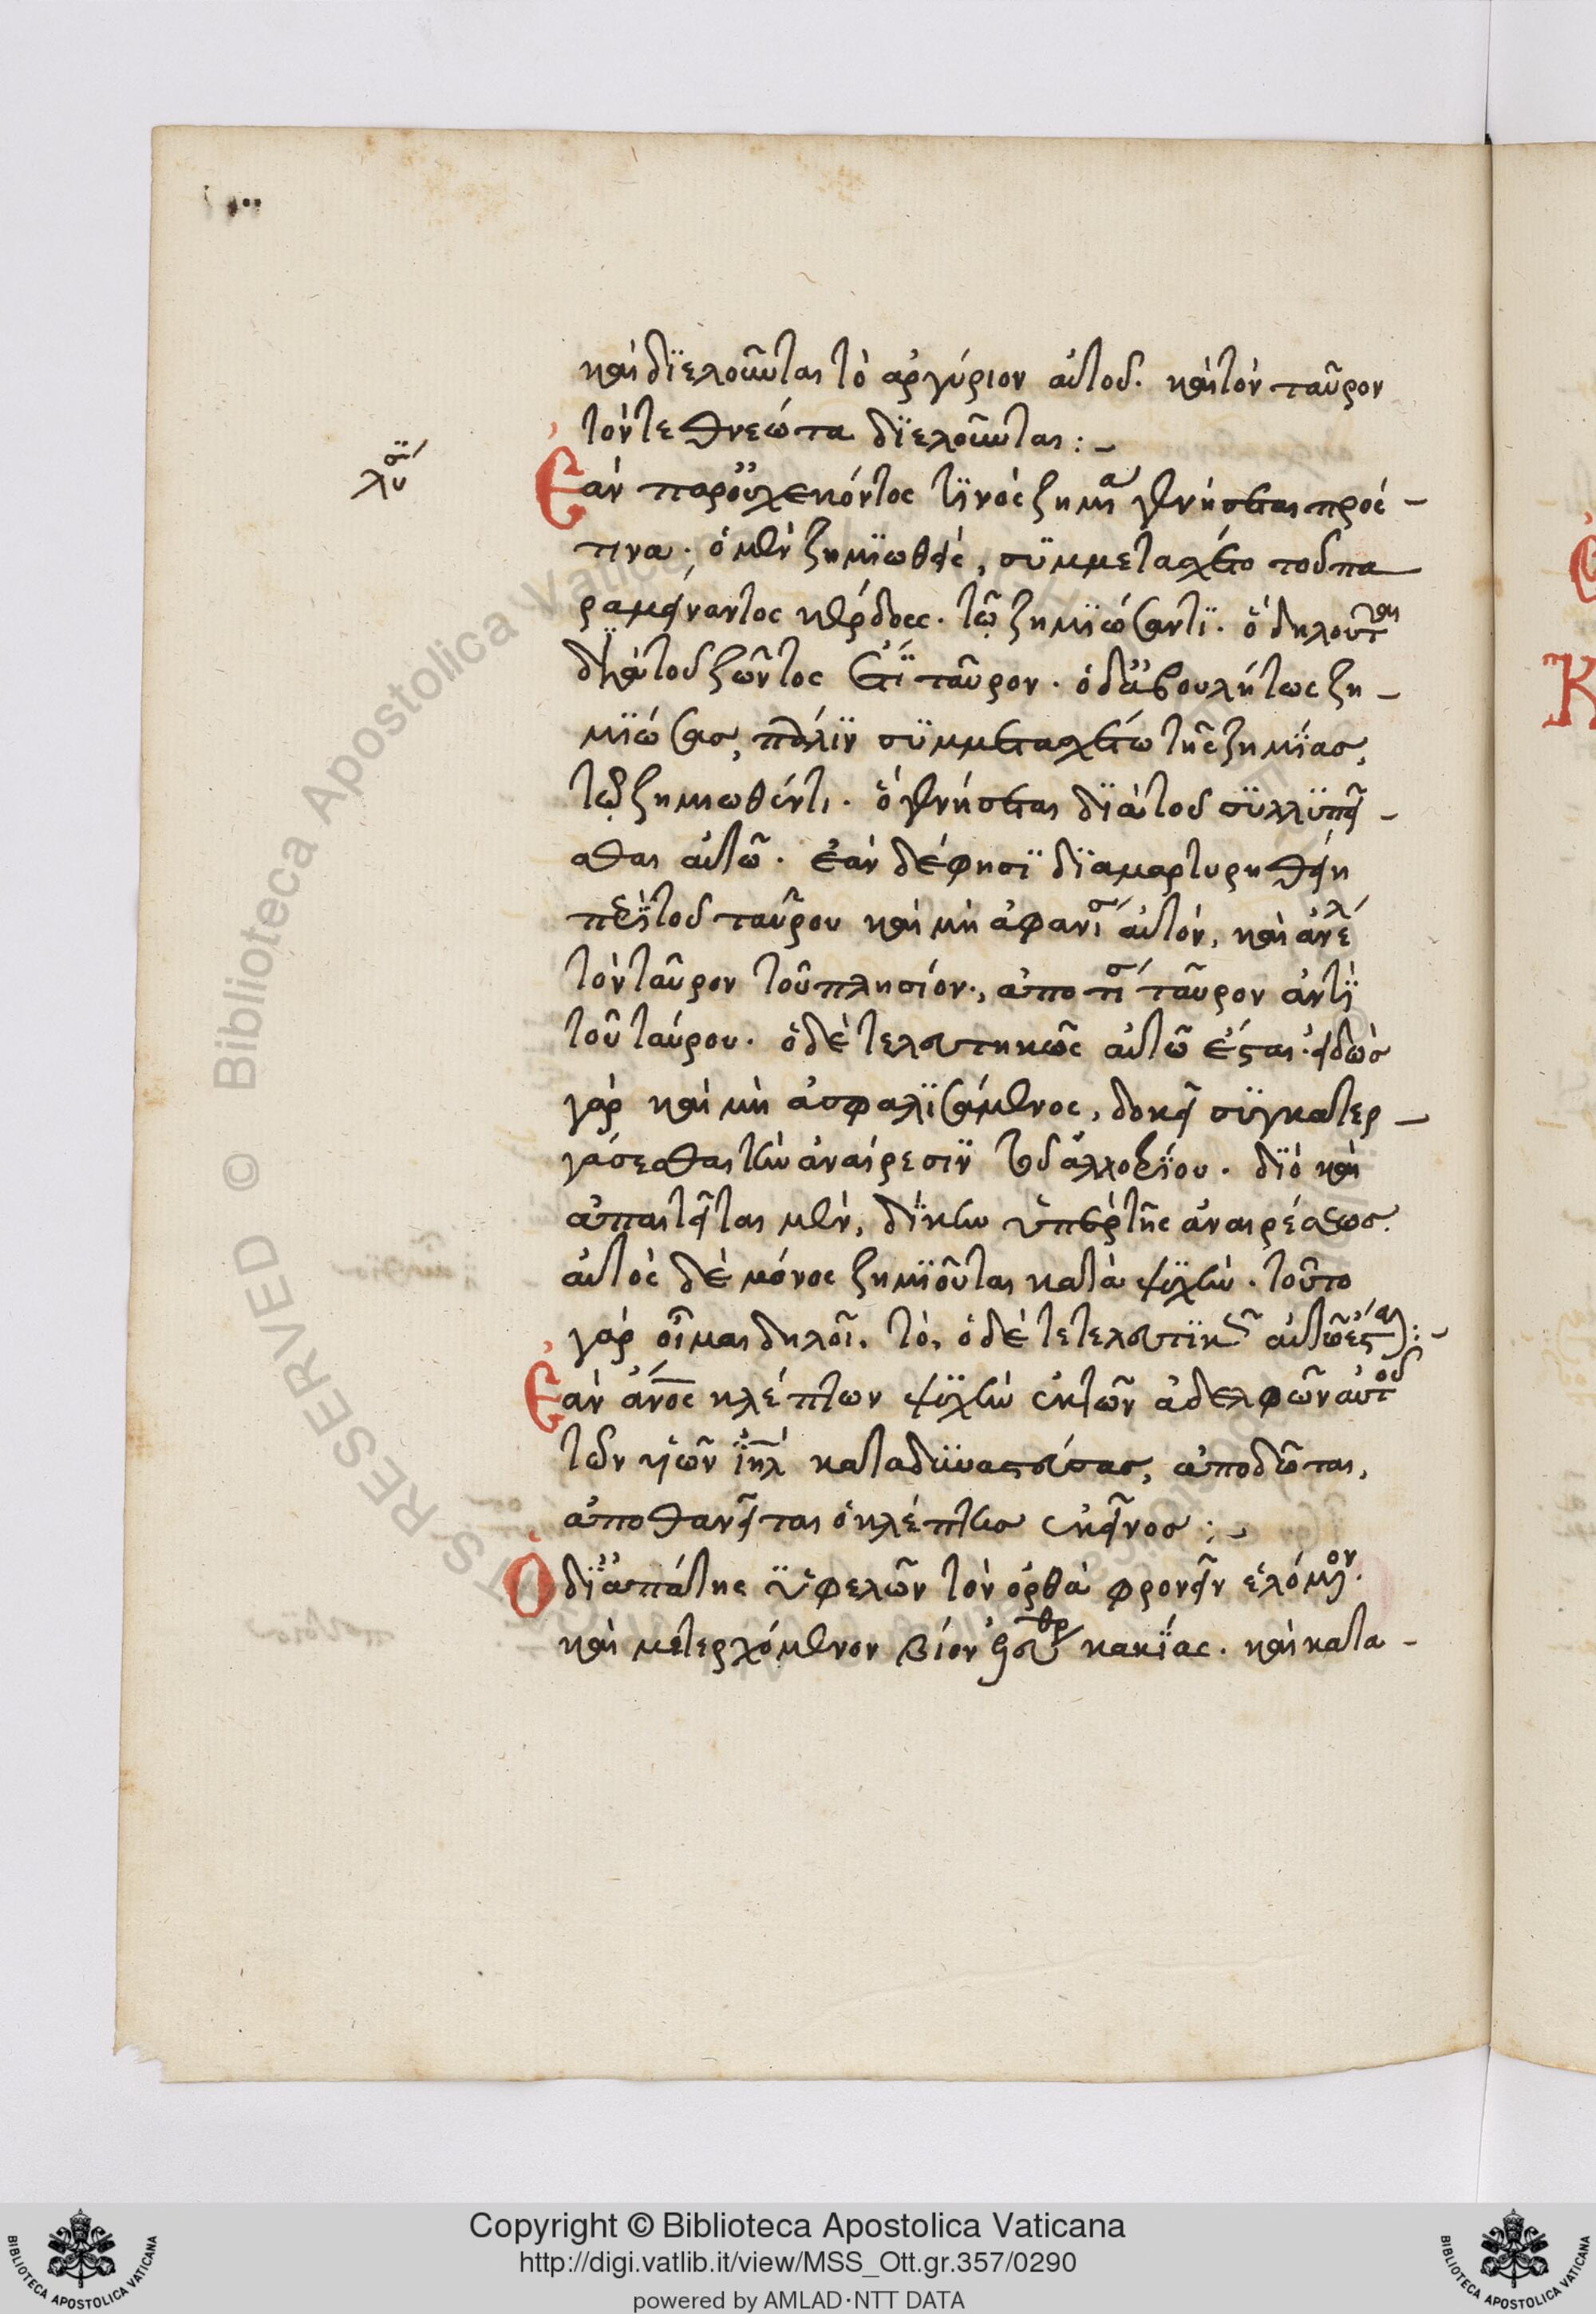 λύσϊ
καὶ διελοῦνται τὸ ἀργύριον αὐτοῦ. καὶ τὸν ταῦρον
τὸν τεθνεῶτα διελοῦνται:-
Ἐὰν παρ' οὐχ ἑκόντος τινὸς ζημία γένηται πρός
τινα· ὁ μὲν ζημιωθεὶς, συμμεταχέτω τοῦ πα
ραμείναντος κέρδους. τῷ ζημιώσαντι. ὃ δηλοῦται
διὰ τοῦ ζῶντος ἔτι ταῦρον. ὁ δ' ἀβουλήτως ζη-
μιώσας, πάλιν συμμεταχέτω τῆς ζημίας,
τῷ ζημιωθέντι. ὃ γενήσεται διὰ τοῦ συλλυπεῖ-
σθαι αὐτῷ. ἐὰν δέ φησι διαμαρτυρηθείη
περὶ τοῦ ταύρου καὶ μὴ ἀφανίσ αὐτόν, καὶ ἀνέλ
τὸν ταῦρον τοῦ πλησίον., ἀποτίσ ταῦρον ἀντὶ
τοῦ ταύρου. ὁ δὲ τελευτηκὼς αὐτῷ ἔσται. εἰδὼς
γὰρ καὶ μὴ ἀσφαλισάμενος, δοκεῖ συγκατερ-
γάσεσθαι τὴν ἀναίρεσιν τοῦ ἀλλοζίου. διὸ καὶ
ἀπαιτεῖται μὲν, δίκην ὑπὲρ τῆς ἀναιρέσεως.
αὐτὸς δὲ μόνος ζημιοῦται κατὰ ψυχήν. τοῦτο
γὰρ οἶμαι δηλοῖ. τό, ὁ δὲ τετελευτικὼς αὐτῷ ἔσται:-
Ἐὰν ἄνος κλέπτων ψυχὴν ἐκ τῶν ἀδελφῶν αὐτοῦ
τῶν υἱῶν ἰηλ καταδυναστεύσας, ἀποδῶται,
ἀποθανεῖται ὁ κλέπτης ἐκεῖνος:-
Ὁ δι' ἀπάτης ὑφελῶν τὸν ὀρθὰ φρονεῖν ἑλόμενον.
καὶ μετερχόμενον βίον ἐλεύθερ κακίας. καὶ κατα-
Copyright © Biblioteca Apostolica Vaticana
http://digi.vatlib.it/view/MSS_Ott.gr.357/0290
powered by AMLAD·NTT DATA